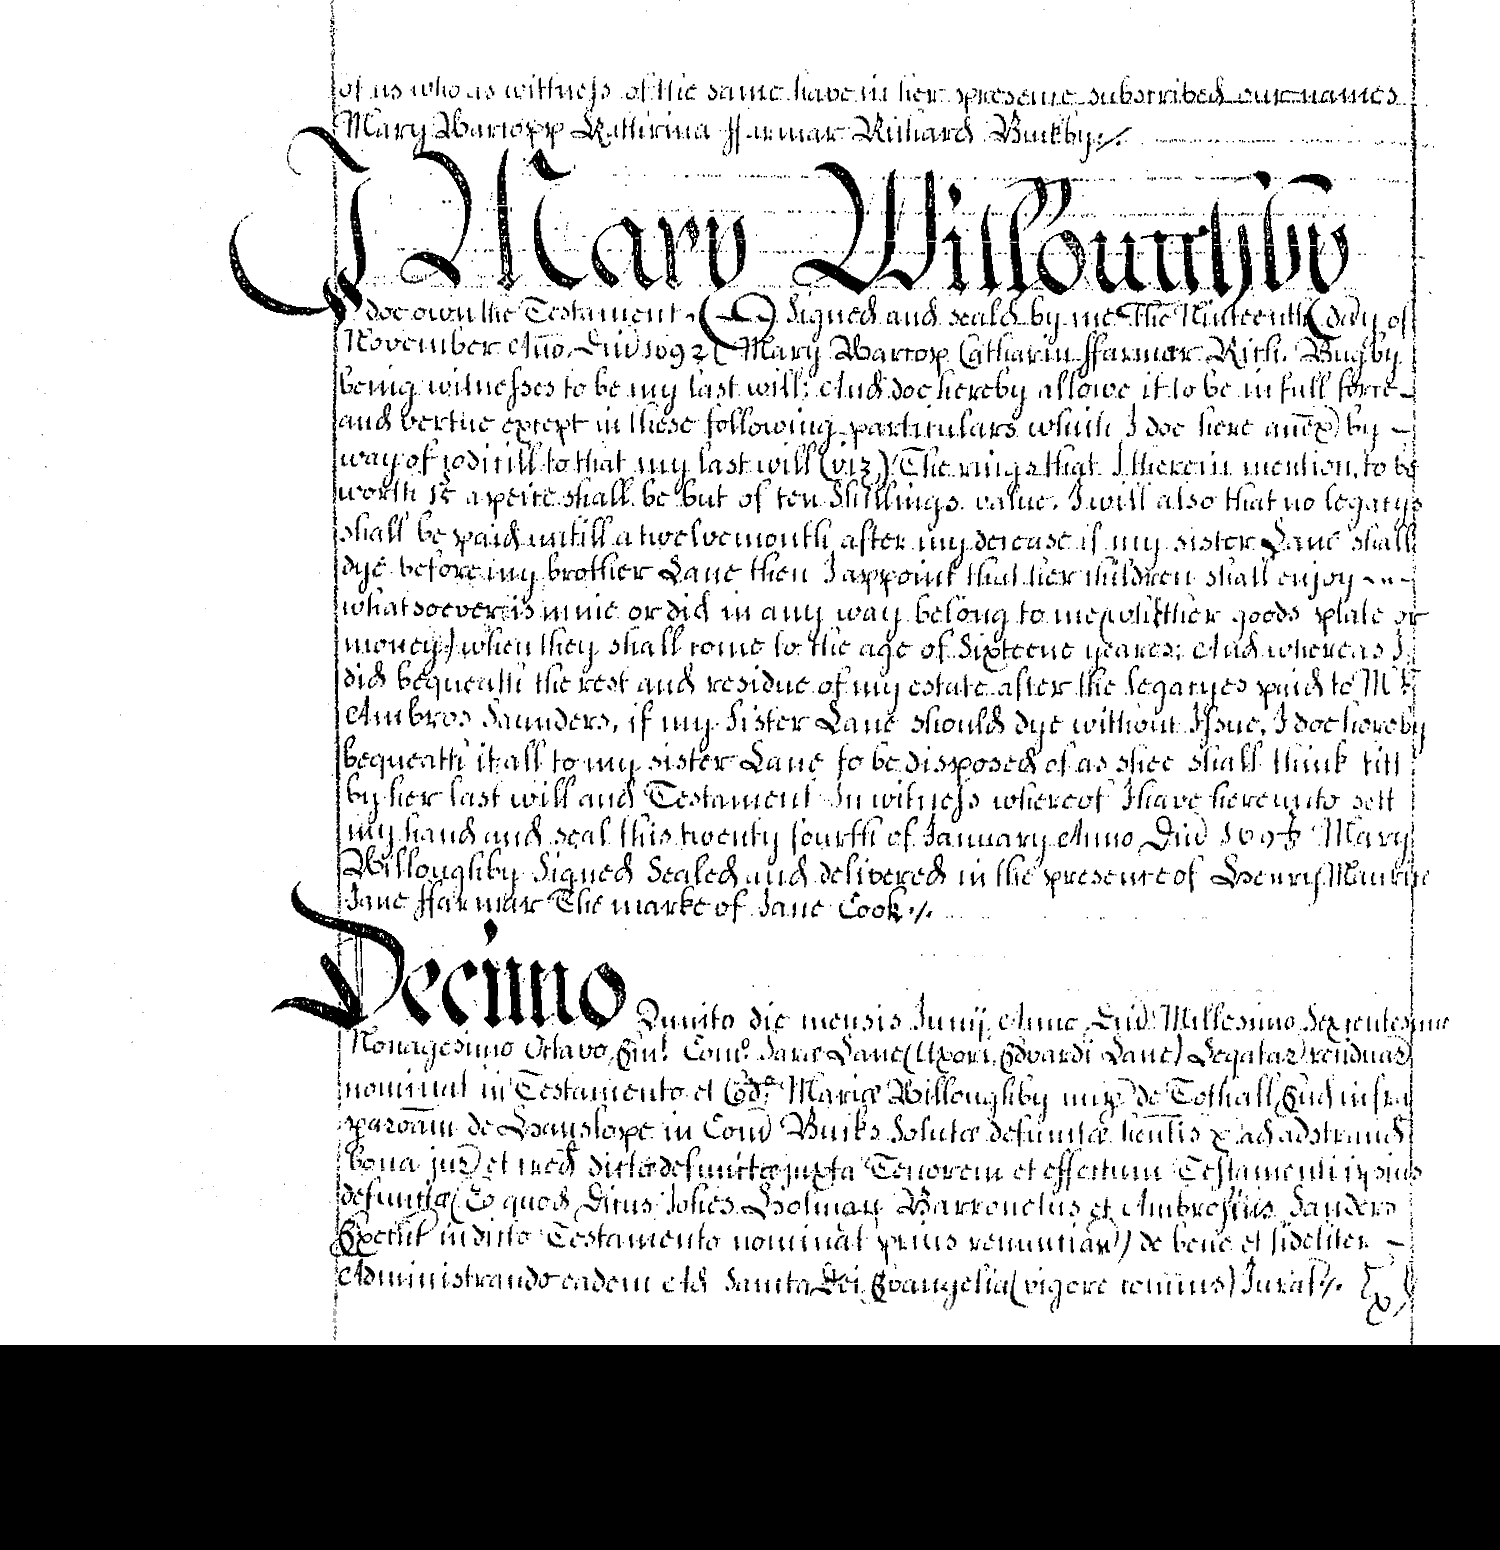 of us who as wittness of the same have in her presence subscribed our names
Mary Bartopp Katherina ffarmar Richard Buckby ./.
I Mary Willoughby
doe own the Testament (Signed and seald by me The Ninteenth day of
November Año Dñi 1692 (Mary Bartop Catharin ffarmer Rich. Bugby
being witnesses to be my last will: And doe hereby allowe it to be in full force
and vertue except in these following particulars which I doe here añex by
way of codicill to that my last will (viz) The rings that I therein mention to be
worth a peice shall be but of ten Shillings value. I will also that no legacys
shall be paid untill a twelvemonth after my decease if my sister Lane shall
dye before my brother Lane then I appoint that her children shall enjoy
whatsoever is mine or did in any way belong to me (whither goods plate or
money) when they shall come to the age of Sixteene yeares: And whereas I
did bequeath the rest and residue of my estate after the legacyes paid to Mr
Ambros Saunders, if my Sister Lane should dye without Issue, I doe hereby
bequeath it all to my sister Lane to be disposed of as shee shall think fitt
by her last will and Testament In witness whereof I have hereunto sett
my hand and seal this twenty fourth of January Anno Dñi Mary
Willoughby Signed Sealed and delivered in the presence of Henry
Jane ffarmar The marke of Jane Cook ./.
Decimo Quinto die mensis Junij Anno Dñi Millesimo Sexcentesimo
Nonagesimo Octavo Em.t Com.o Saræ Lane (Uxori Edvardi Lane) Legatar residuar
nominat in Testamento et Mariæ Willoughby nup de Tothall End infra
paroãm de Hanslope in Com Bucks Solutæ defunctæ heñtis &c ad adstrand
bona jur et cred dictæ defunctæ juxta Tenorem et effectum Testamenti ipsius
defunctæ (Eo quod Dñus Johes Holman Barronettus et Ambrosius Sanders
Execut in dicto Testamento nominat prius renunciar) de bene et fideliter
Administrando eadem Ad Sancta Dei Evangelia (vigore comñis) Jurat ./.